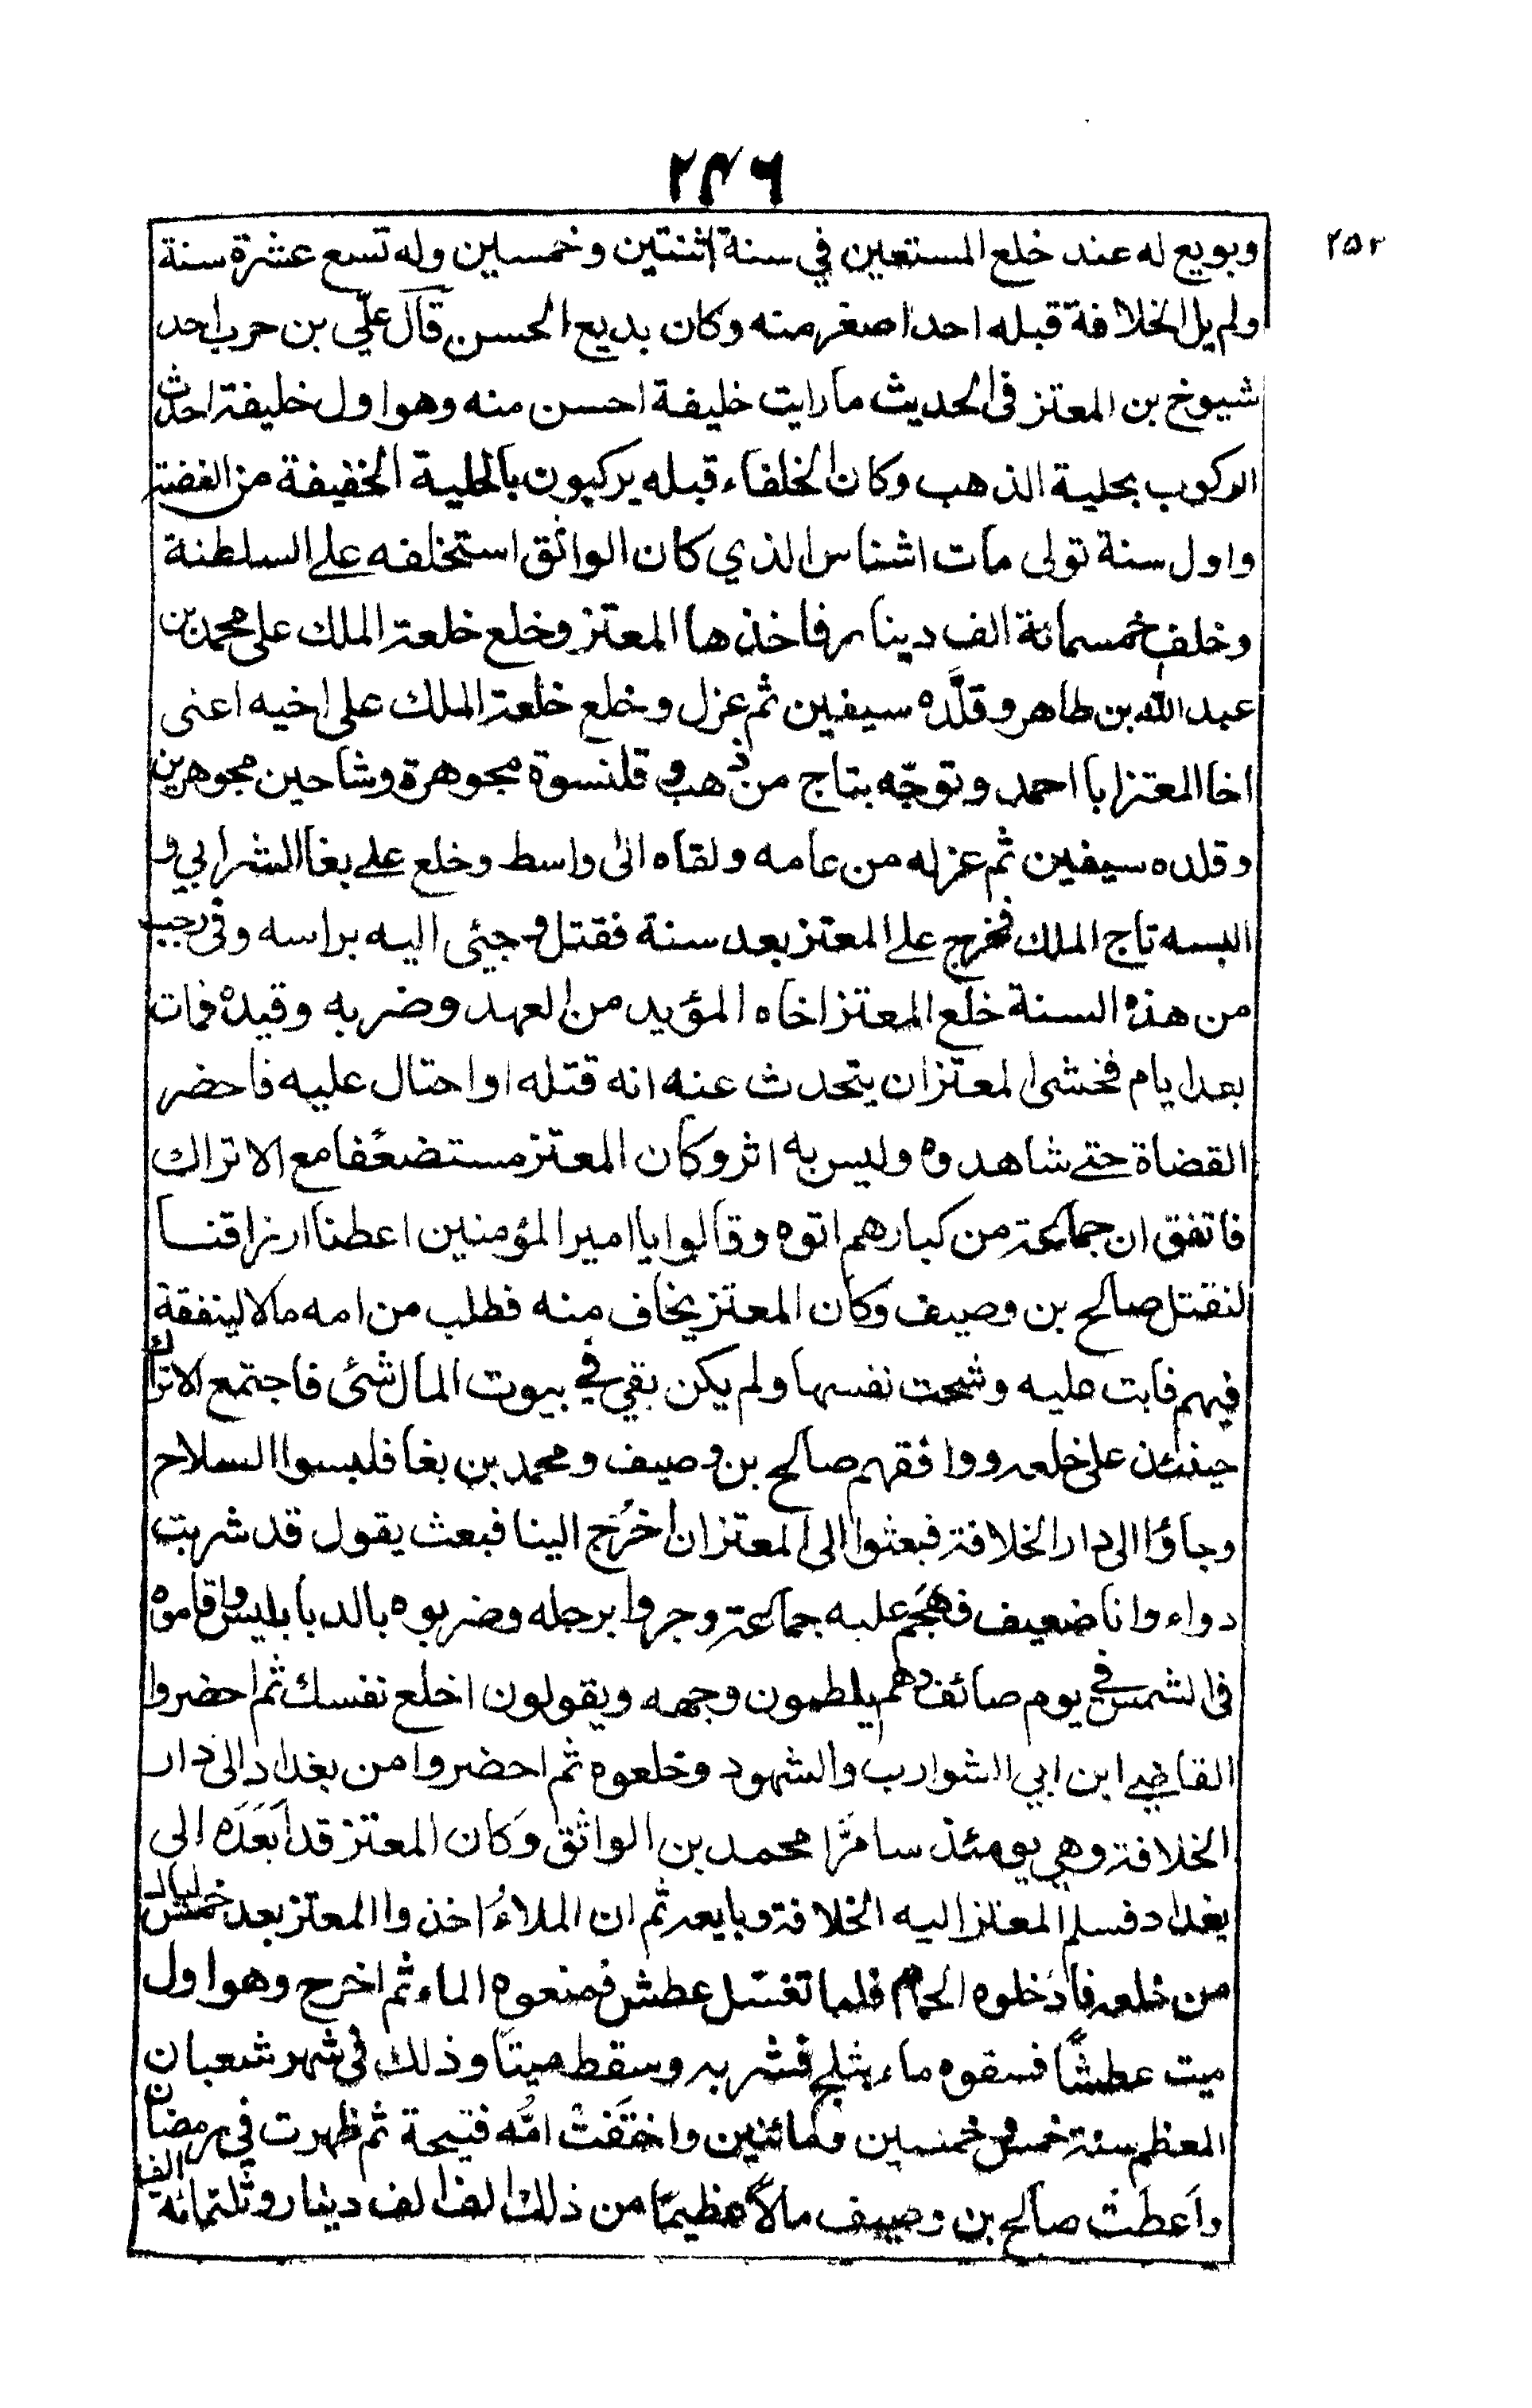 ۲۴۶
۲۵۲
وبويع له عند خلع المستعين في سنة اثنتين وخمسين وله تسع عشرة سنة
ولم يل الخلافة قبله احدا صغر منه وكان بديع الحسن قال علي بن حرب احد
شيوخ بن المعتز في الحديث ما رايت خليفة احسن منه وهو اول خليفة احدث
الركوب بحلية الذهب وكان الخلفاء قبله يركبون بالحلية الخفيفة من الفضة
واول سنة تولى مات اشناس الذي كان الواثق استخلفه على السلطنة
وخلف خمسمائة الف دينار فاخذها المعتز وخلع خلعة الملك على محمد بن
عبد الله بن طاهر وقلّده سيفين ثم عزل وخلع خلعة الملك على اخيه اعنى
اخا المعتز ابا احمد وتوجّه بتاج من ذهب و قلنسوة مجوهرة وشاحين مجوهرين
وقلده سيفين ثم عزله من عامه ولقاه الى واسط وخلع على بغا الشرابي و
البسه تاج الملك فخرج على المعتز بعد سنة فقتل وجيئ اليه براسه وفى رجب
من هذه السنة خلع المعتز اخاه المؤيد من العهد وضربه وقيده فمات
بعد ايام فخشى المعتز ان يتحدث عنه انه قتله او احتال عليه فاحضر
القضاة حتى شاهدوه وليس به اثر وكان المعتز مستضعفا مع الاتراك
فاتفق ان جماعة من كبارهم اتوه وقالوا يا امير المؤمنين اعطنا ارزاقنا
لنقتل صالح بن وصيف وكان المعتز يخاف منه فطلب من امه مالا لينفقة
فيهم فابت عليه وشحت نفسها ولم يكن بقي في بيوت المال شئ فاجتمع الاتراك
حينئذ على خلعه ووافقهم صالح بن وصيف ومحمد بن بغا فلبسوا السلاح
وجاؤا الى دار الخلافة فبعثوا الى المعتز ان اخرُج الينا فبعث يقول قد شربت
دواء وانا ضعيف فهَجَم عليه جماعة وجروا برجله وضربوه بالدبابليس واقاموه
فى الشمس في يوم صائف وهم يلطمون وجهه ويقولون اخلع نفسك ثم احضروا
القاضي ابن ابي الشوارب والشهود وخلعوه ثم احضروا من بغداد الى دار
الخلافة وهي يومئذ سامرّا محمد بن الواثق وَكان المعتز قد اَبعَدَه الى
بغداد فسلم المعتز اليه الخلافة وبايعه ثم ان الملاءُ اخذوا المعتز بعد خمس ليال
من خلعه فادخلوه الحمام فلما تغسّل عطش فمنعوه الماء ثم اخرج وهو اول
ميت عطشًا فسقوه ماء بثلج فشربه وسقط ميتًا وذلك في شهر شعبان
المعظم سنة خمس و خمسين ومائتين واختَفَتْ امُّه قتيحة ثم ظهرت في رمضان
واَعطَتْ صالح بن وصيف مالًا عظيمًا من ذلك الف الف دينار وثلثمائه الف